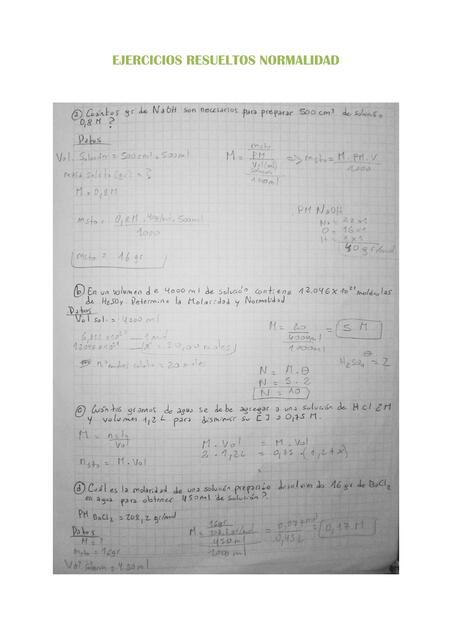 EJERCICIOS RESUELTOS NORMALIDAD
a) Cuántos gr de NaOH son necesarios para preparar 500 cm³ de
0,8 M ?
Datos
Vol. = 500 cm³ = 500 ml
masa soluto (gr) = ?
M = 0,8 M
M = msto
PM
Vol (ml)
1000 ml
=> msto = M . PM . V
1000
msto = 0,8 M . 500 ml
1000
msto = 16 gr
PM NaOH
O = 16 x 1
40 gr/mol
b) En un volumen de 4000 ml de solución contiene moléculas
de H₂SO₄. Determine la Molaridad y Normalidad
Datos
Vol sol. = 4000 ml
1 mol
= 20,00 moles
nº moles soluto = 20 moles
M = 20
4000 ml
1000 ml
= 5 M
H₂SO₄ = 2
N = M . θ
N = 5 . 2
N = 10
c) Cuántos gramos de agua se debe agregar a una solución de HCl 2M
y volumen 1,2 L para disminuir su [ ] a 0,75 M.
M = nsto
Vol
nsto = M . Vol
M . Vol = M . Vol
2 . 1,2 L = 0,75 . (1,2 + x)
d) Cuál es la molaridad de una solución preparada disolviendo 16 gr de BaCl₂
en agua para obtener 450 ml de solución ?.
PM BaCl₂ = 208,2 gr/mol
Datos
M = ?
msto = 16 gr
Vol = 450 ml
M = 16 gr
208,2 gr/mol
450 ml
1000 ml
= 0,077 mol
0,45 L
= 0,17 M